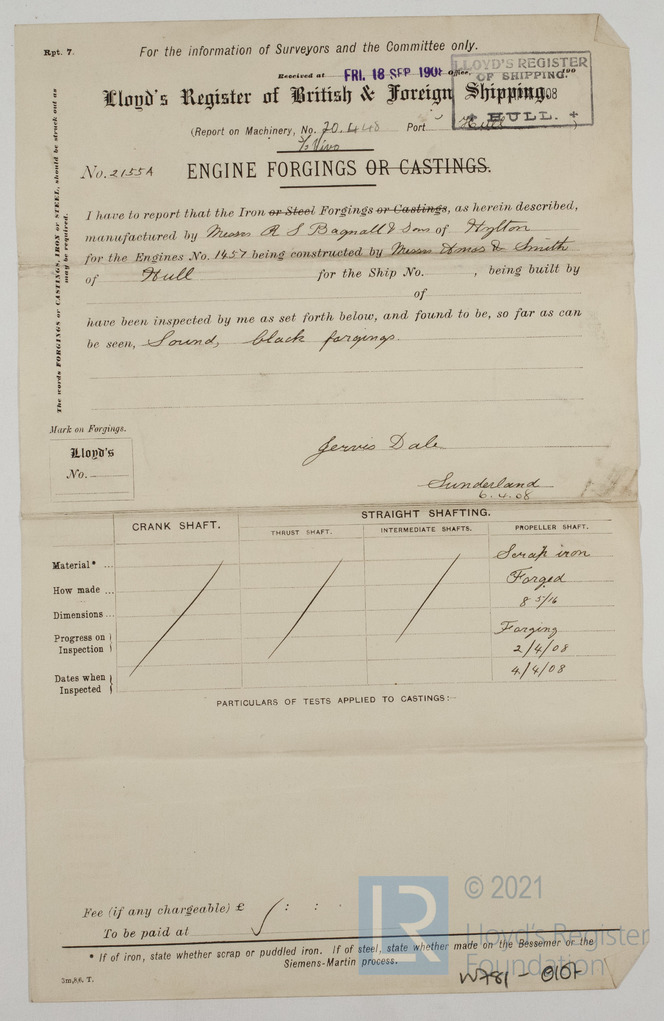 Rpt. 7.
For the information of Surveyors and the Committee only.
Received at FRI. 18 SEP 1908 Office. 190
LLOYD'S REGISTER
OF SHIPPING.
08
HULL.
Lloyd's Register of British & Foreign Shipping.
(Report on Machinery, No. 20.448 Port Hull )
S/S Vivo
No. 2155A ENGINE FORGINGS OR CASTINGS.
The words FORGINGS or CASTINGS, IRON or STEEL, should be struck out as
may be required.
I have to report that the Iron or Steel Forgings or Castings, as herein described,
manufactured by Messrs R S Bagnall & Sons of Hylton
for the Engines No. 1457 being constructed by Messrs Amos & Smith
of Hull for the Ship No. , being built by
of
have been inspected by me as set forth below, and found to be, so far as can
be seen, Sound, black forgings.
Mark on Forgings.
Lloyd's
No.
Jervis Dale
Sunderland
6.4.08
CRANK SHAFT. STRAIGHT SHAFTING.
THRUST SHAFT. INTERMEDIATE SHAFTS. PROPELLER SHAFT.
Material* ... Scrap iron
How made ... Forged
Dimensions ... 8 5/16
Progress on Inspection Forging
2/4/08
Dates when Inspected 4/4/08
PARTICULARS OF TESTS APPLIED TO CASTINGS:-
Fee (if any chargeable) £ : :
To be paid at
* If of iron, state whether scrap or puddled iron. If of steel, state whether made on the Bessemer or the
Siemens-Martin process.
5m,8,6. T.
W781-0107
LR
© 2021
Lloyd's Register
Foundation